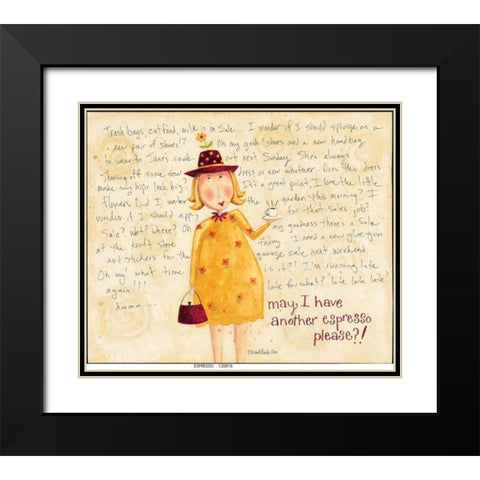 Trash bags, catfood, milk is on sale... I wonder if I should splurge on a
new pair of shoes!? Oh my gosh! shoes and a new handbag
to wear to Jane's cook out next Sunday. She's always
showing off some new dress or new whatever. Does this dress
make my hips look big? It's a great print, I love the little
flowers. Did I water the garden this morning? I
wonder if I should apply for that sales job?
Sale? what? where? Oh my goodness there's a sale
at the craft store today. I need a new glue-gun
and stickers for the garage sale next weekend.
Oh my! what time is it?! I'm running late
again!!! late for what? late late late!
hmmm....
may I have
another espresso
please?!
ESPRESSO 120816